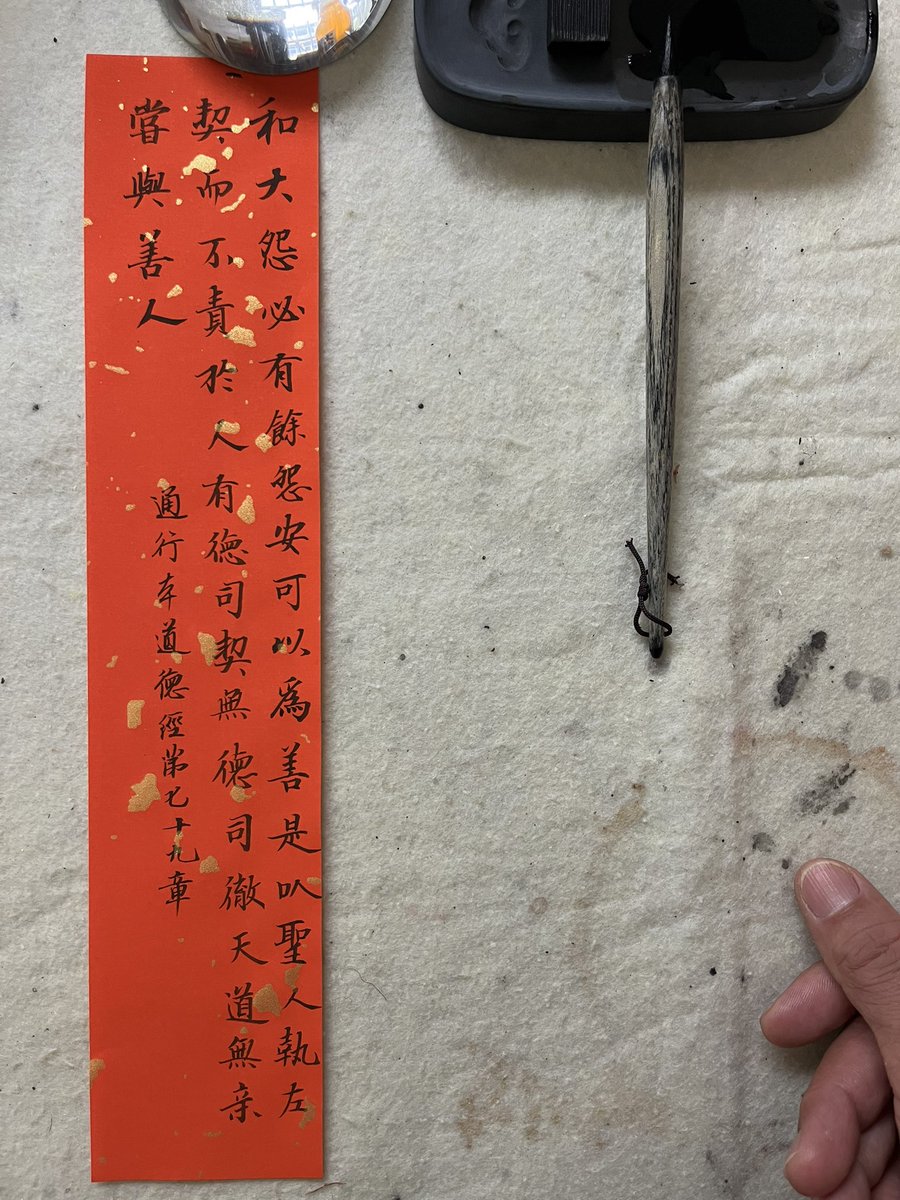 和大怨必有餘怨安可以爲善是以聖人執左
契而不責於人有德司契無德司徹天道無亲
嘗與善人
通行本道德經第七十九章